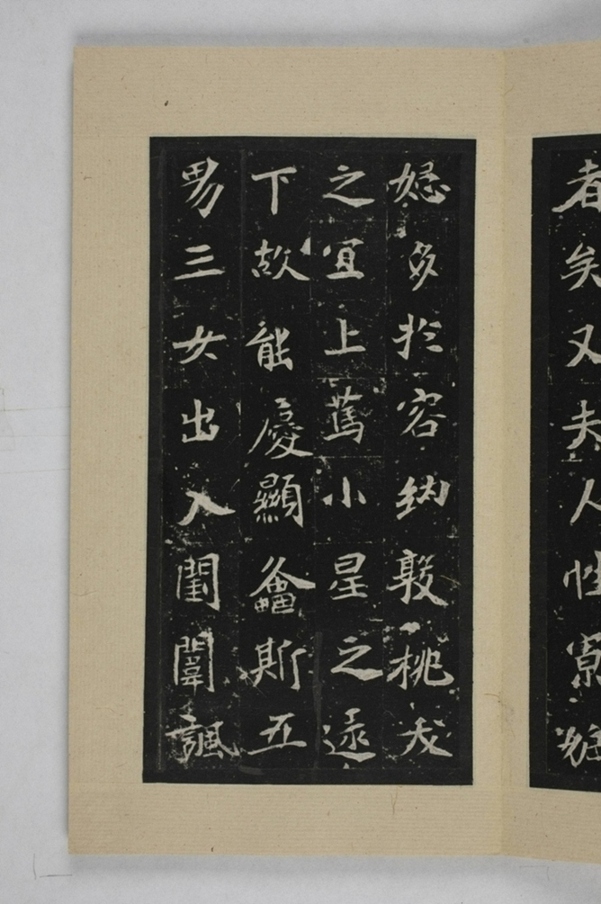 者矣又夫人性寡妬
多於容納敦桃夭
之宜上篤小星之逮
下故能慶顯螽斯五
男三女出入閨闈諷